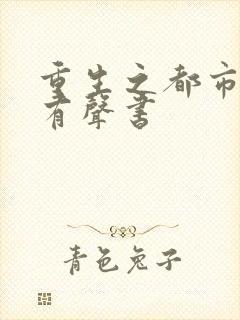 重生之都市
有聲書
青色兔子